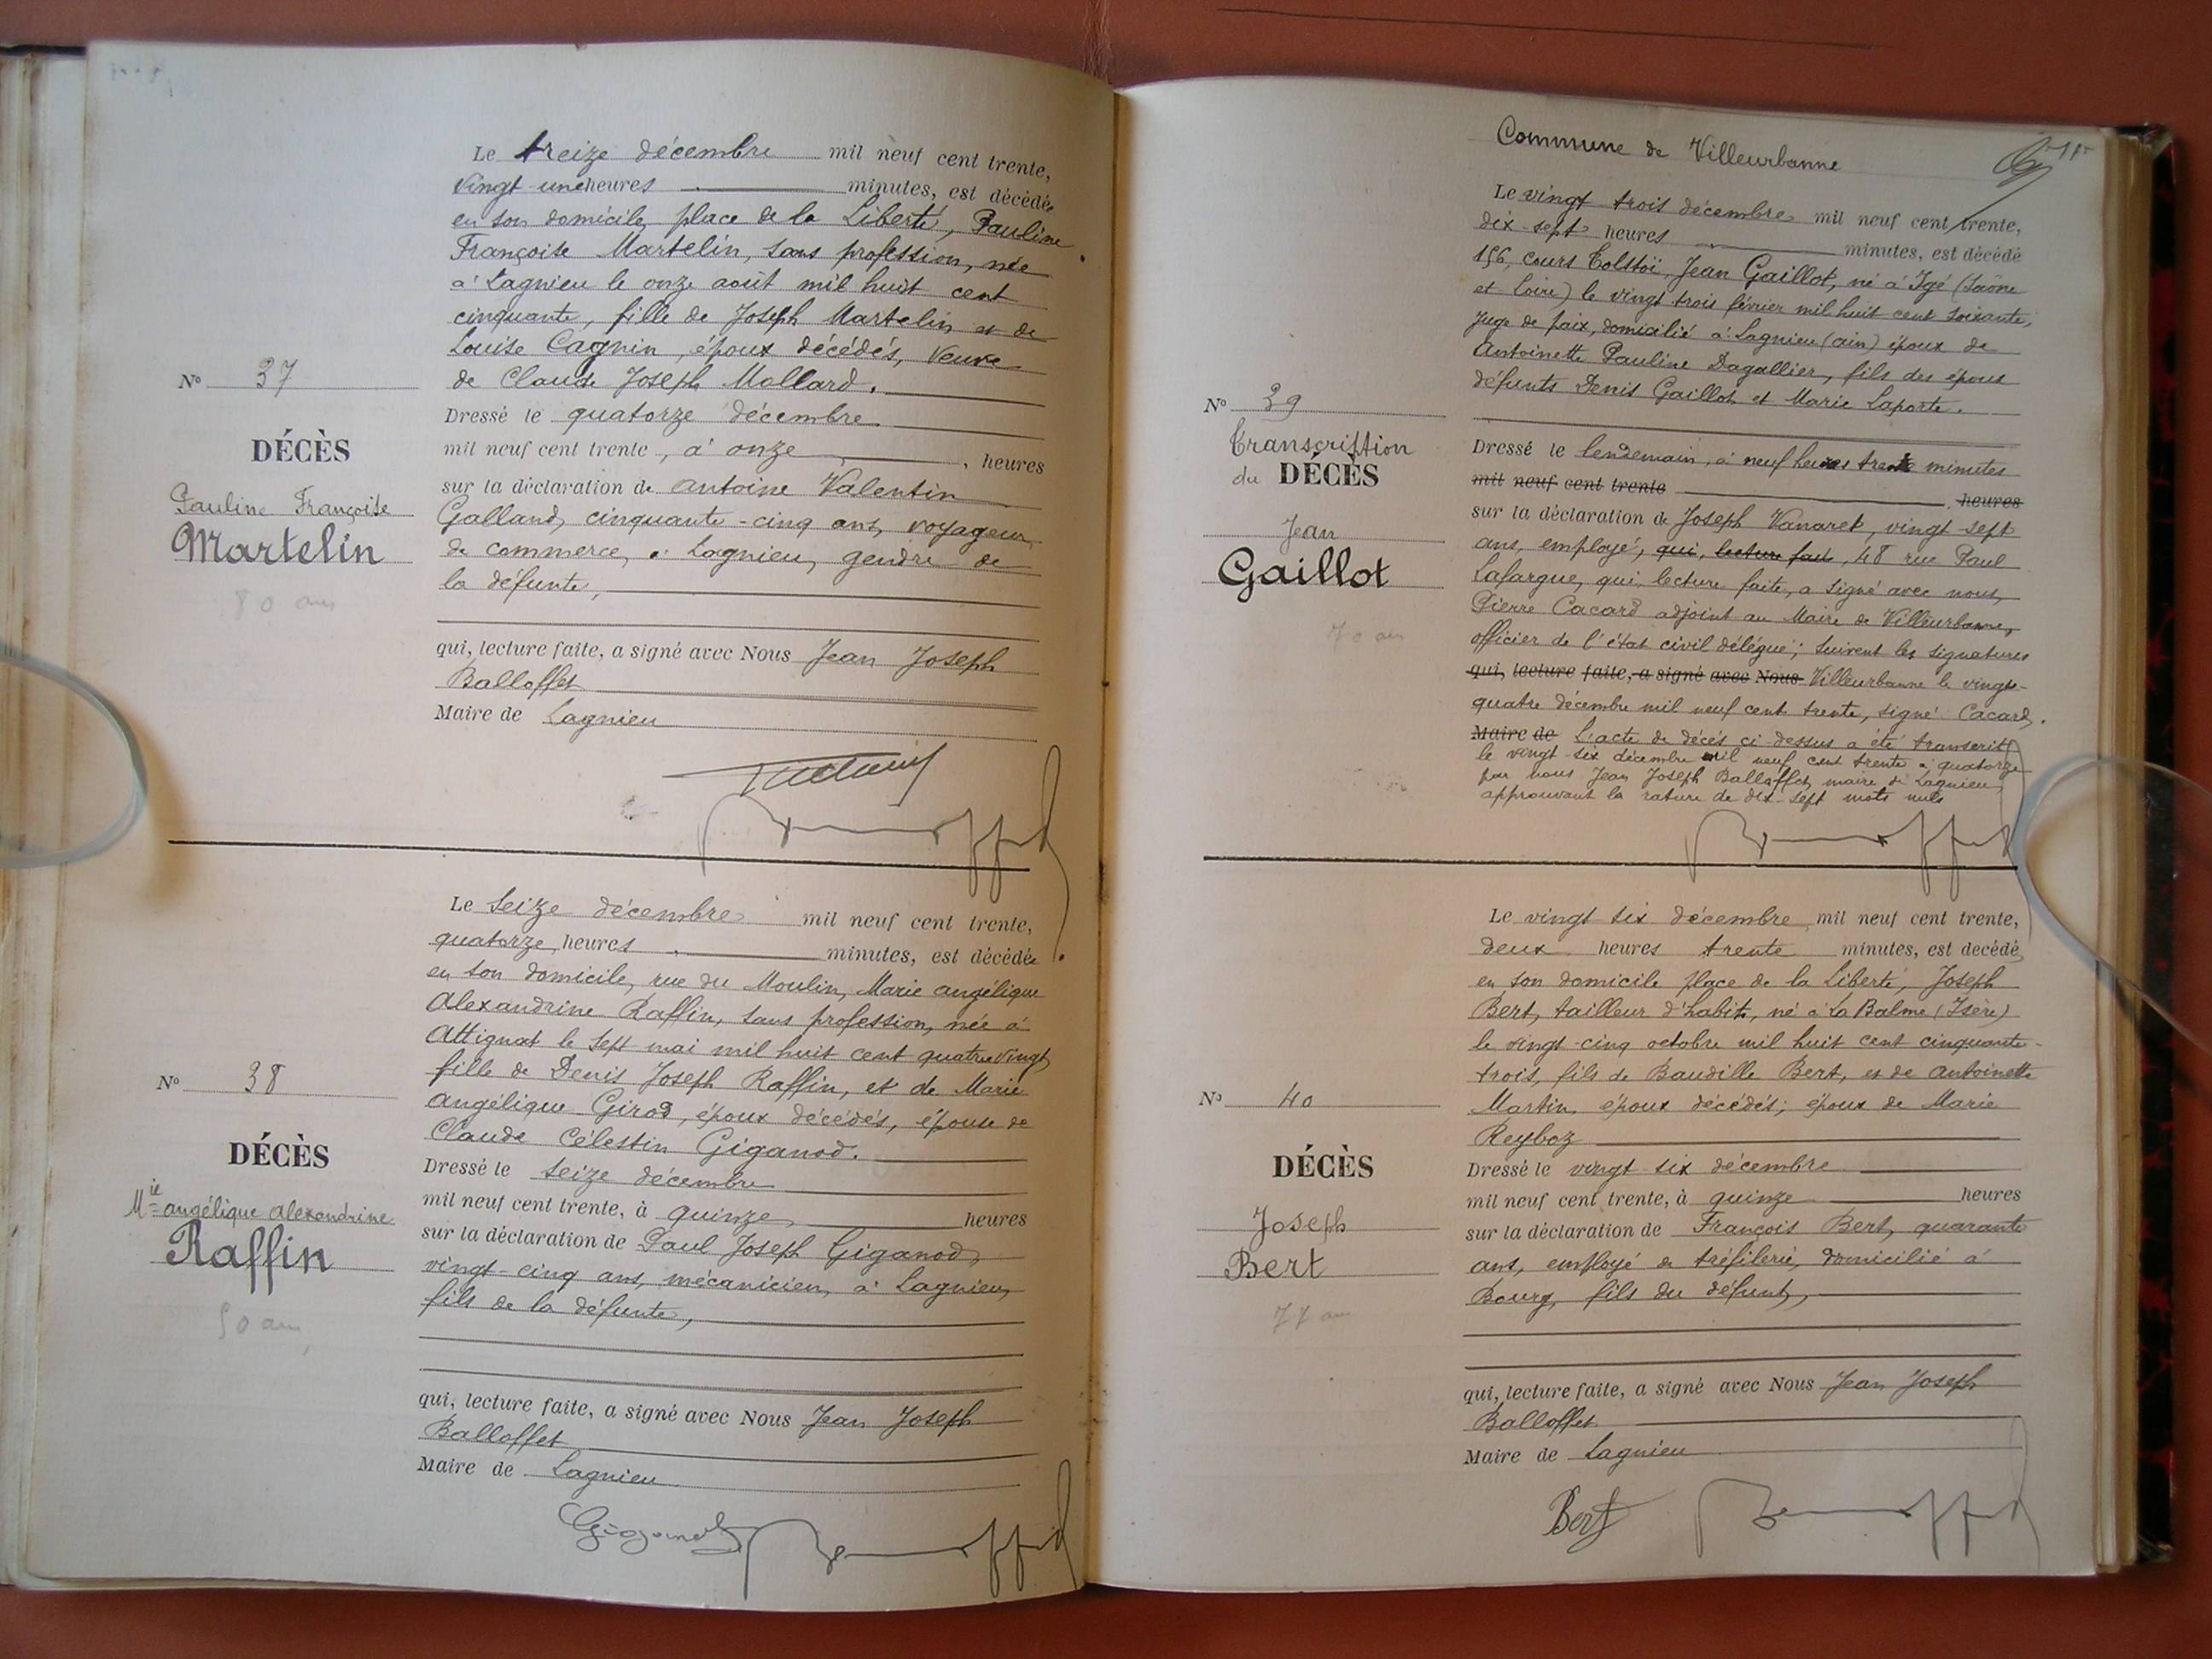 Le treize décembre mil neuf cent trente,
vingt-une heures minutes, est décédée
en son domicile, place de la Liberté, Pauline
Françoise Martelin, sans profession, née
à Lagnieu le onze août mil huit cent
cinquante, fille de Joseph Martelin et de
Louise Cagnin, époux décédés, Veuve
de Claude Joseph Mollard.
Nº 37
DÉCÈS
Pauline Françoise
Martelin
80 ans
Dressé le quatorze décembre
mil neuf cent trente, à onze heures
sur la déclaration de Antoine Valentin
Galland, cinquante-cinq ans, voyageur
de commerce, à Lagnieu, gendre de
la défunte,
qui, lecture faite, a signé avec Nous Jean Joseph
Balloffet
Maire de Lagnieu
Le seize décembre mil neuf cent trente,
quatorze heures minutes, est décédée
en son domicile, rue du Moulin, Marie angélique
Alexandrine Raffin, sans profession, née à
Attignat le sept mai mil huit cent quatre vingt,
fille de Denis Joseph Raffin, et de Marie
Angélique Girod, époux décédés, épouse de
Claude Célestin Giganod.
Nº 38
DÉCÈS
Mie angélique alexandrine
Raffin
50 ans
Dressé le seize décembre
mil neuf cent trente, à quinze heures
sur la déclaration de Paul Joseph Giganod,
vingt-cinq ans, mécanicien, à Lagnieu,
fils de la défunte,
qui, lecture faite, a signé avec Nous Jean Joseph
Balloffet
Maire de Lagnieu
Giganod
Commune de Villeurbanne
Le vingt trois décembre mil neuf cent trente,
dix-sept heures minutes, est décédé
156, cours Tolstoï, Jean Gaillot, né à Igé (Saône
et Loire) le vingt trois février mil huit cent soixante,
juge de paix, domicilié à Lagnieu (ain) époux de
Antoinette Pauline Dagallier, fils des époux
défunts Denis Gaillot et Marie Laporte.
Nº 39
Transcription
du DÉCÈS
Jean
Gaillot
70 ans
Dressé le lendemain, à neuf heures trente minutes
mil neuf cent trente heures
sur la déclaration de Joseph Vanaret, vingt-sept
ans, employé, qui, lecture fait, 48 rue Paul
Lafargue, qui, lecture faite, a signé avec nous,
Pierre Cacard adjoint au Maire de Villeurbanne,
officier de l'état civil délégué; suivent les signatures
qui, lecture faite, a signé avec Nous Villeurbanne le vingt-
quatre décembre mil neuf cent trente, signé Cacard.
Maire de L'acte de décès ci-dessus a été transcrit
le vingt-six décembre mil neuf cent trente à quatorze
par nous Jean Joseph Balloffet, maire de Lagnieu,
approuvant la rature de dix-sept mots nuls
Le vingt six décembre mil neuf cent trente,
deux heures trente minutes, est décédé
en son domicile place de la Liberté, Joseph
Bert, tailleur d'habits, né à La Balme (Isère)
le vingt-cinq octobre mil huit cent cinquante-
trois, fils de Baudille Bert, et de Antoinette
Martin, époux décédés; époux de Marie
Reyboz
Nº 40
DÉCÈS
Joseph
Bert
77 ans
Dressé le vingt six décembre
mil neuf cent trente, à quinze heures
sur la déclaration de François Bert, quarante
ans, employé de tréfilerie, domicilié à
Bourg, fils du défunt,
qui, lecture faite, a signé avec Nous Jean Joseph
Balloffet
Maire de Lagnieu
Bert